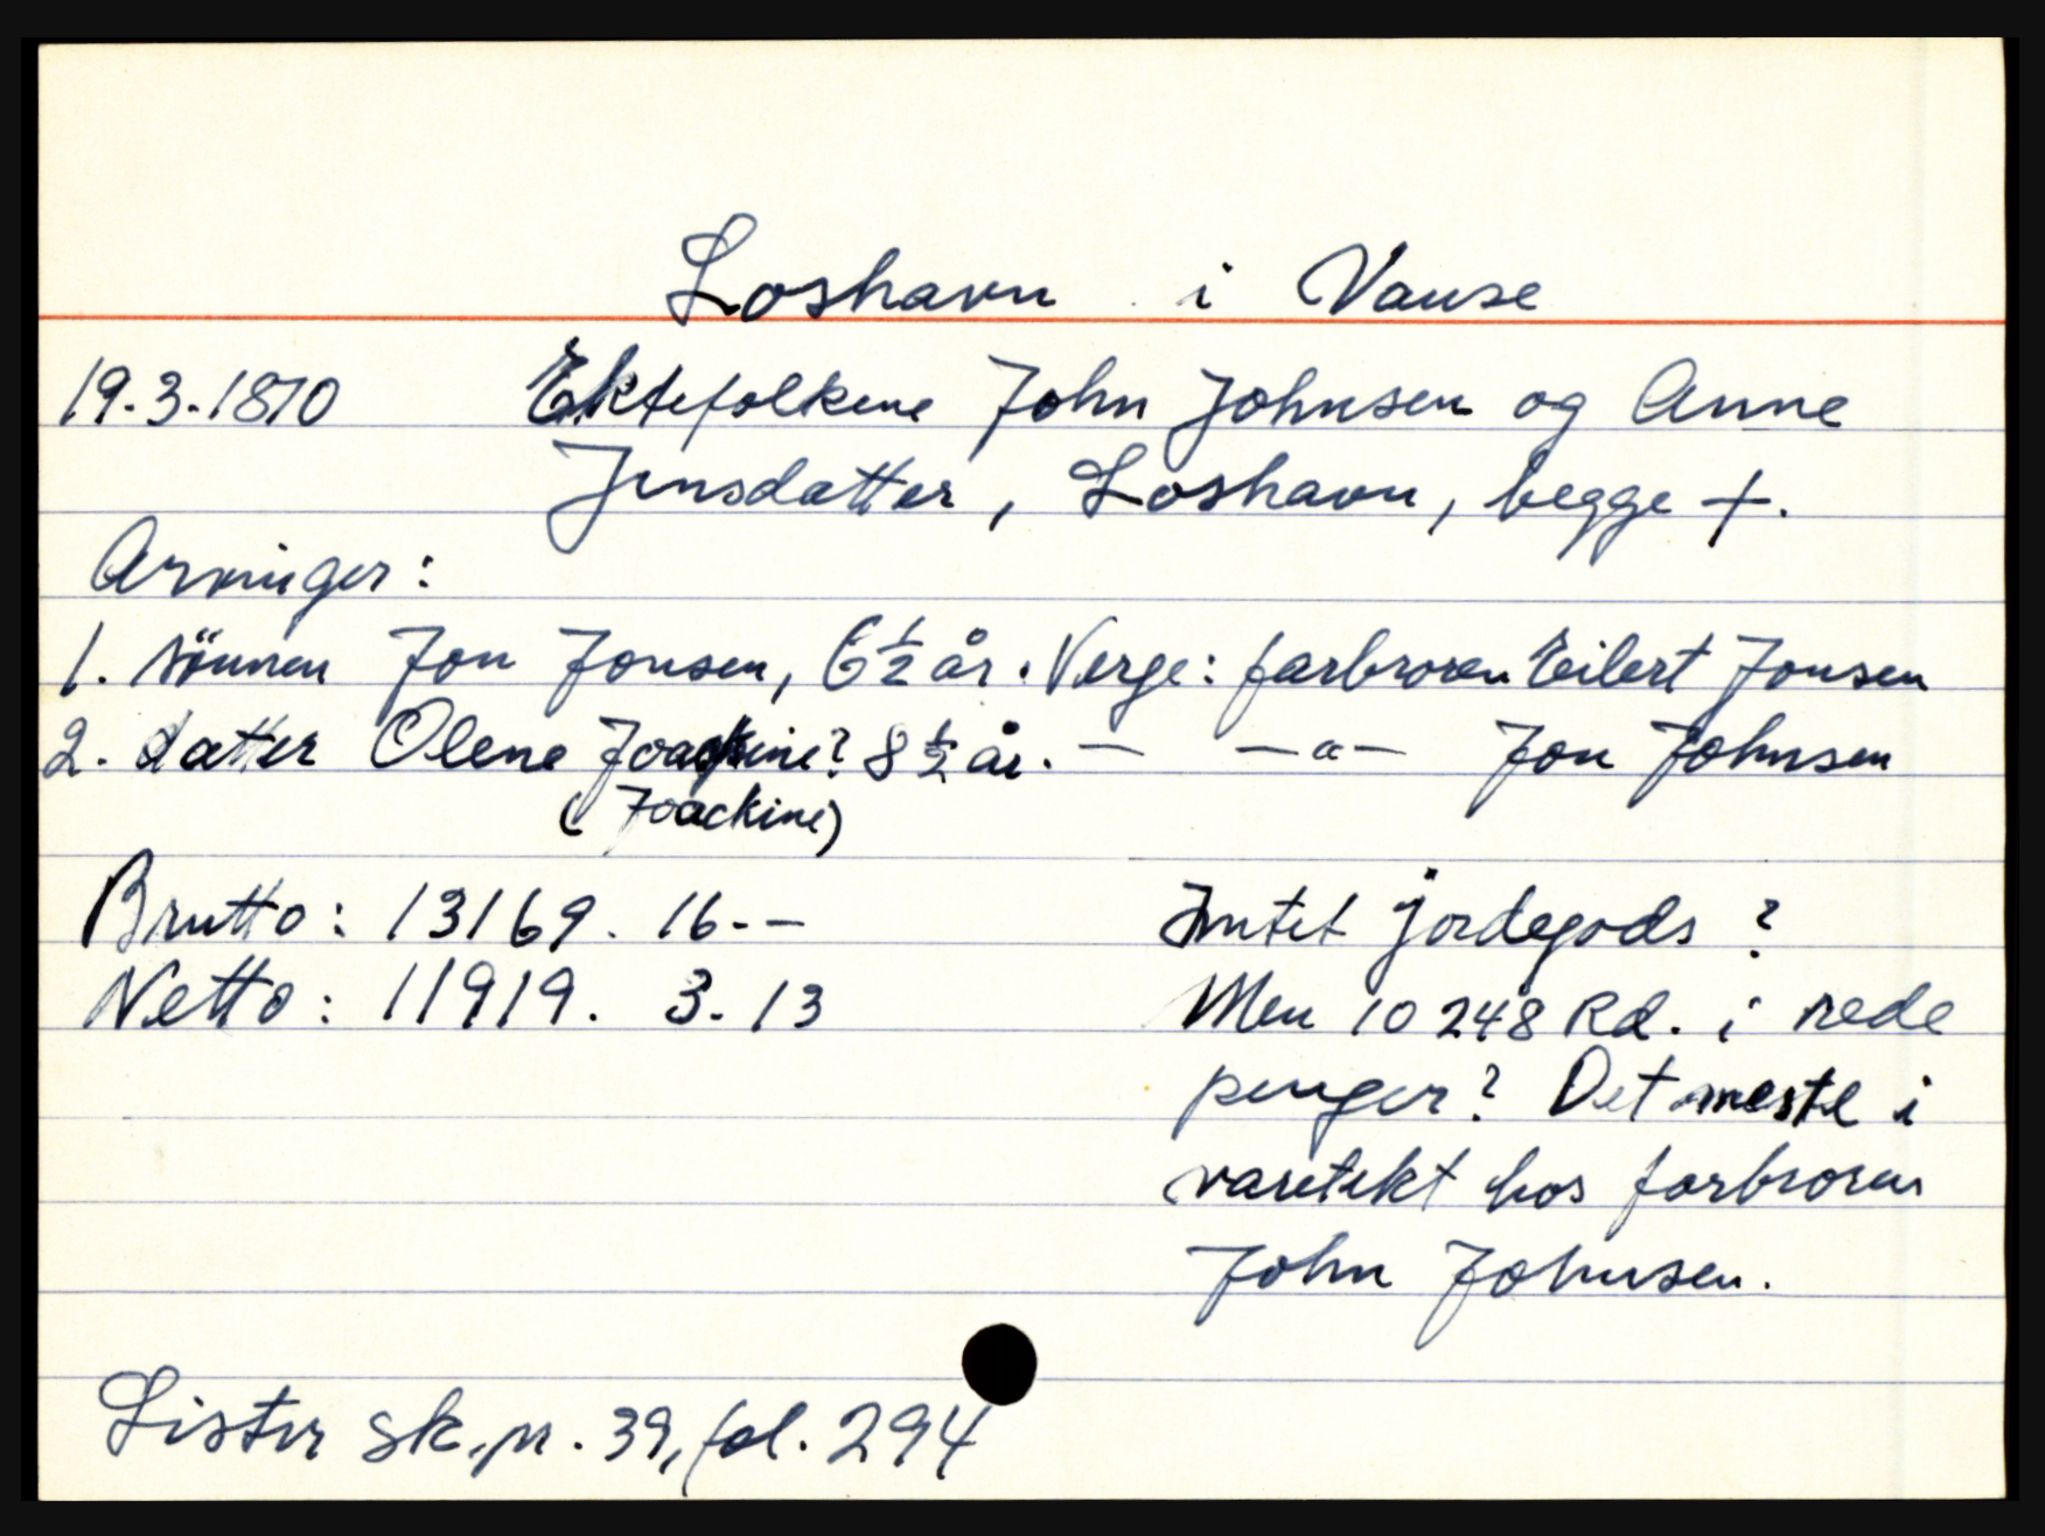 Loshavn i Vanse
19.3.1810 Ektefolkene John Johnsen og Anne
Jensdatter, Loshavn, begge +.
Arvinger:
1. sönnen Jon Jonsen, 6 1/2 år. Verge: farbroren Eilert Jonsen
2. datter Olene Joackine? 8 1/2 år. — —"— Jon Johnsen
(Joackine)
Brutto: 13169. 16.- – Intet jordegods?
Netto: 11919. 3. 13 Men 10248 Rd. i rede
penger? Det meste i
varetekt hos farbroren
John Johnsen.
Lister sk.pr. 39, fol. 294